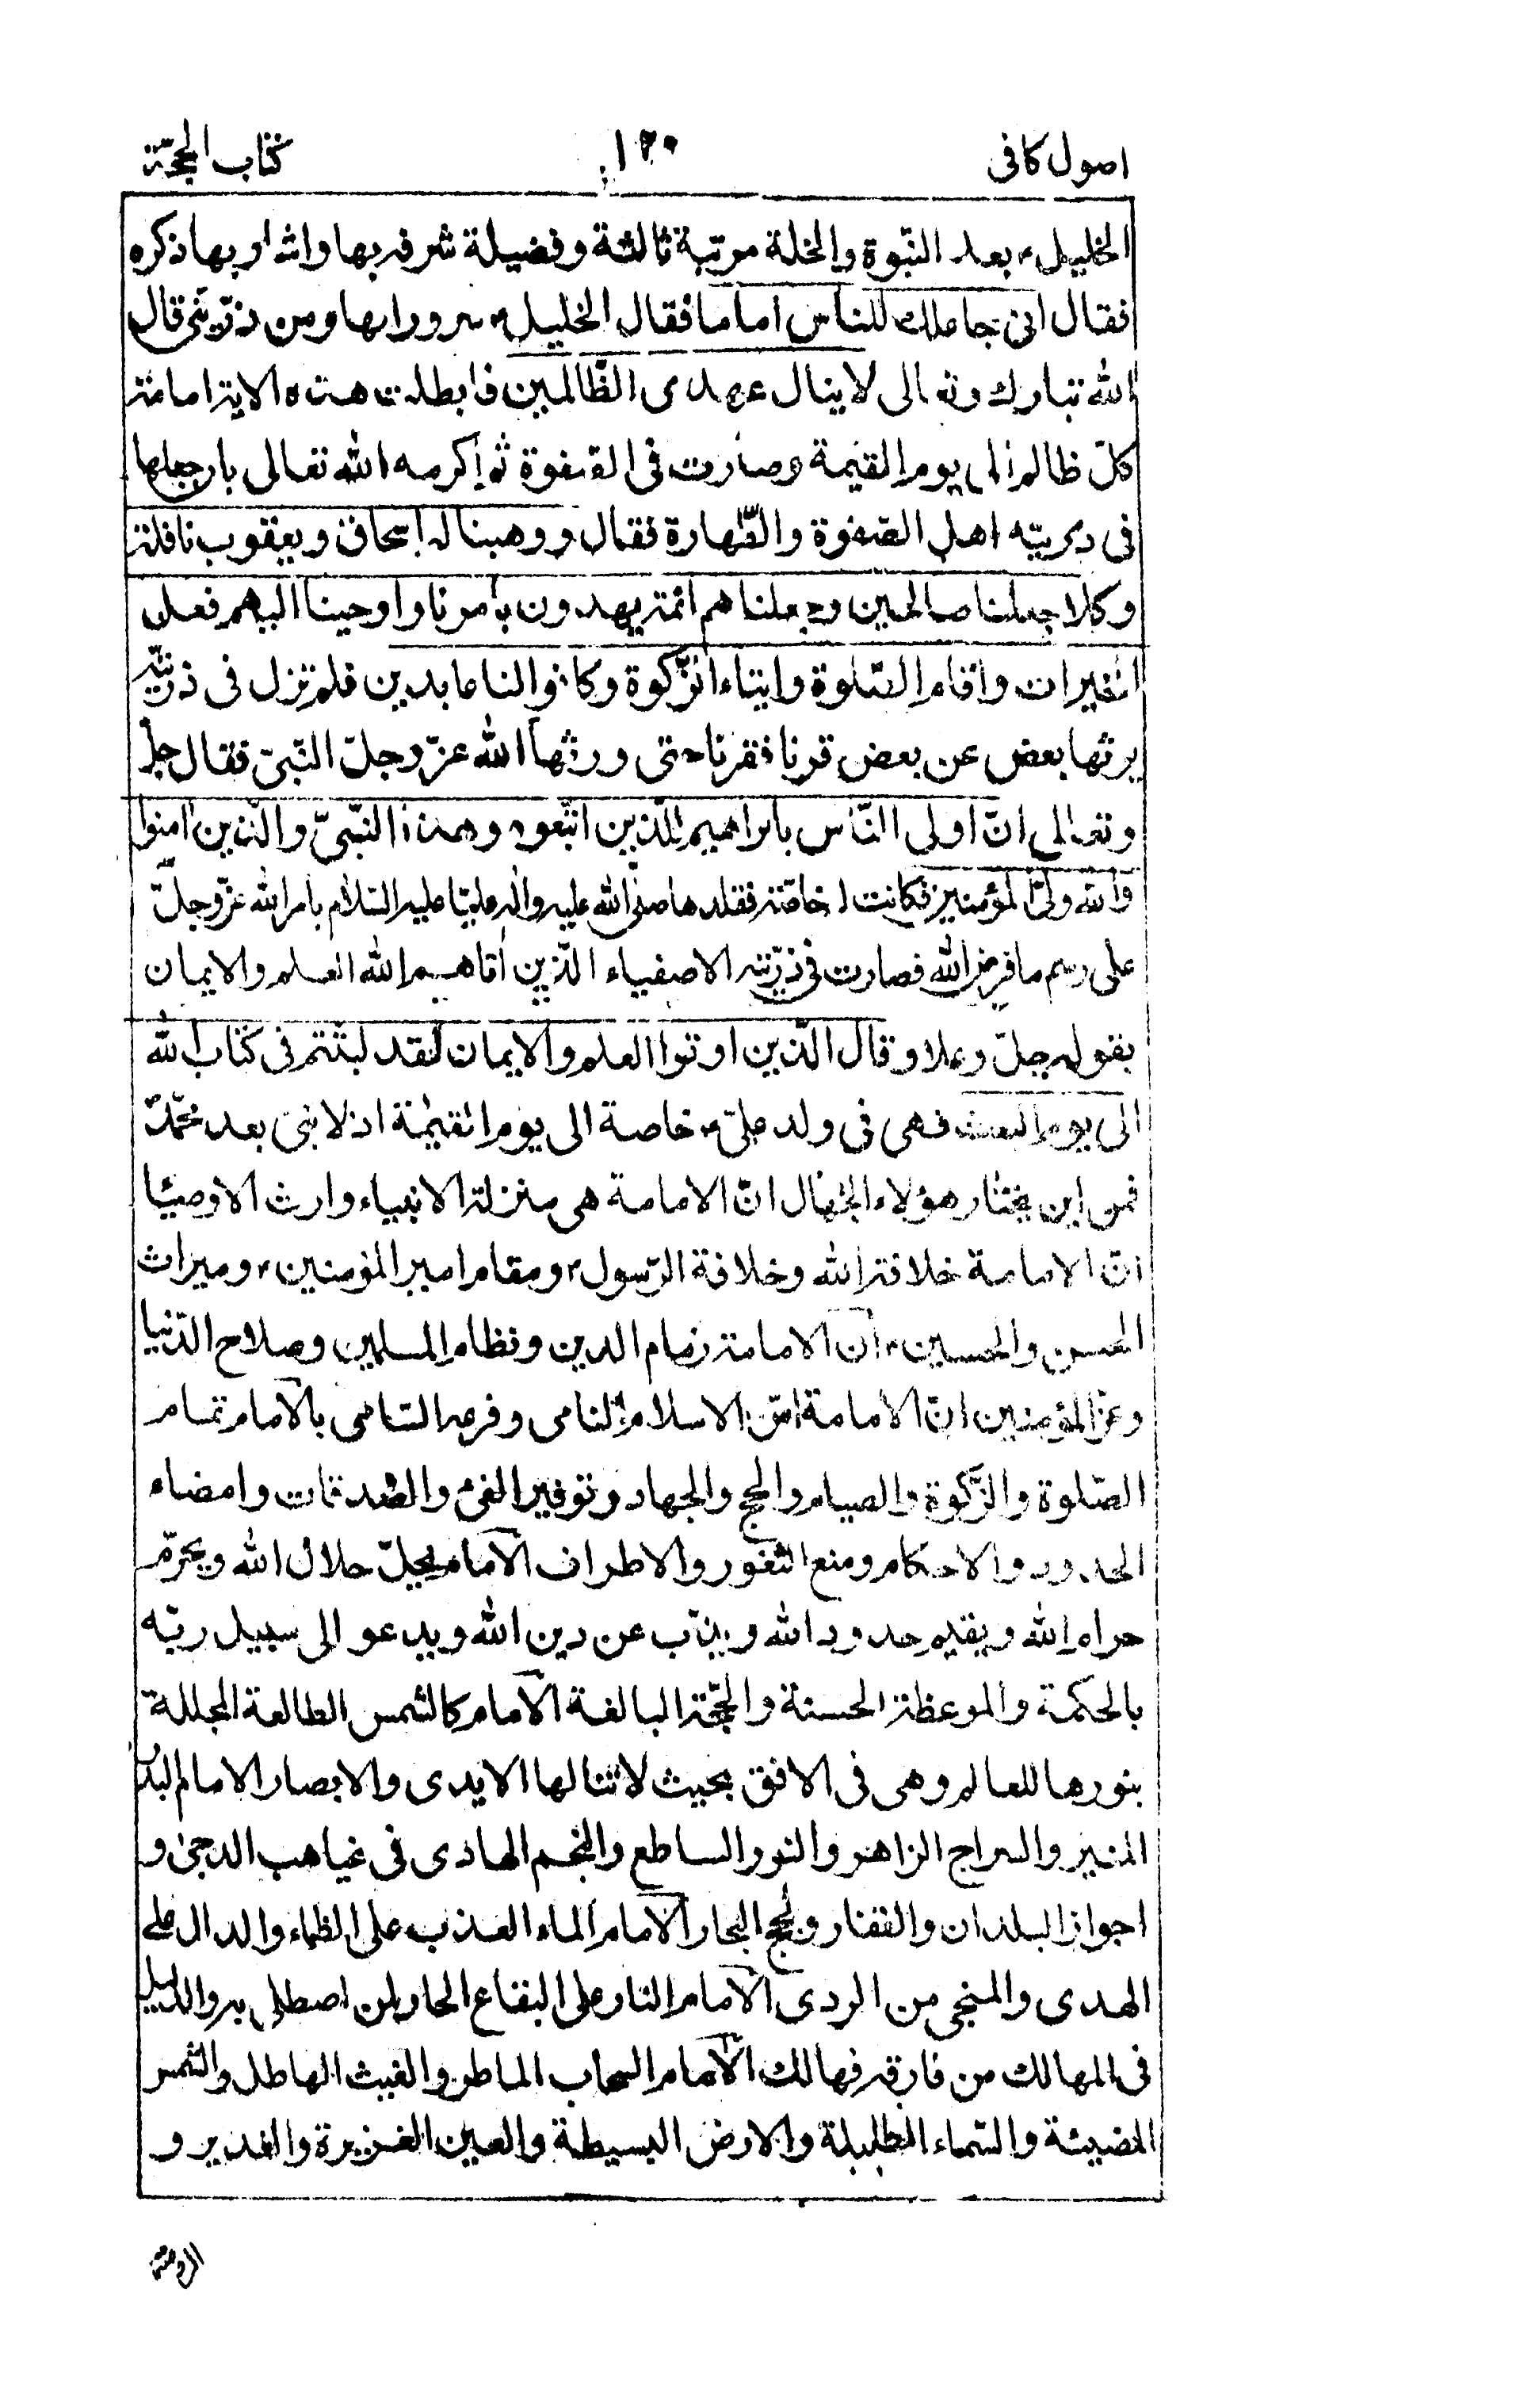 اصول كافى ١٢٠ كتاب الحجّة
الخليل ع بعد النّبوة والخلة مرتبة ثالثة وفضيلة شرفه بها واشاد بها ذكره
فقال انى جاعلك للناس اماما فقال الخليل ع سرورا بها ومن ذرّيتى قال
الله تبارك وتعالى لا ينال عهدى الظّالمين فابطلت هذه الاية امامة
كلّ ظالم الى يوم القيمة وصارت فى الصفوة ثم اكرمه الله تعالى بان جعلها
فى ذريّته اهل الصّفوة والطّهارة فقال ووهبنا له اسحاق ويعقوب نافلة
وكلا جعلنا صالحين وجعلناهم ائمة يهدون بامرنا واوحينا اليهم فعل
الخيرات واقام الصّلوة وايتاء الزّكوة وكانوا لنا عابدين فلم تزل فى ذريّته
يرثها بعض عن بعض قرنا فقرنا حتى ورثها الله عزّ وجلّ النّبىّ فقال جلّ
وتعالى انّ اولى النّاس بابراهيم للّذين اتّبعوه وهذا النّبىّ والّذين امنوا
والله ولىّ المؤمنين فكانت له خاصّة فقلدها صلّى الله عليه واله عليّا عليه السّلام بامر الله عزّ وجلّ
على رسم ما فرض الله فصارت فى ذرّيّته الاصفياء الّذين اتاهم الله العلم والايمان
بقوله جلّ وعلا وقال الّذين اوتوا العلم والايمان لقد لبثتم فى كتاب الله
الى يوم البعث فهى فى ولد علىّ ع خاصة الى يوم القيمة اذ لا نبى بعد محمّد ص
فمن اين يختار هؤلاء الجهّال انّ الامامة هى منزلة الانبياء وارث الاوصيا
انّ الامامة خلافة الله وخلافة الرّسول ص ومقام امير المؤمنين ع وميراث
الحسن والحسين ع ان الامامة زمام الدين ونظام المسلمين وصلاح الدّنيا
وعزّ المؤمنين انّ الامامة اسّ الاسلام النامى وفرعه السّامى بالامام تمام
الصّلوة والزّكوة والصيام والحج والجهاد وتوفير الفىء والصّدقات وامضاء
الحدود والاحكام ومنع الثغور والاطراف الامام يحلّ حلال الله ويحرّم
حرام الله ويقيم حدود الله ويذبّ عن دين الله ويدعو الى سبيل ربّه
بالحكمة والموعظة الحسنة والحجّة البالغة الامام كالشمس الطالعة المجللة
بنورها للعالم وهى فى الافق بحيث لا تنالها الايدى والابصار الامام البدر
المنير والسراج الزاهر والنور الساطع والنجم الهادى فى غياهب الدجى و
اجواز البلدان والقفار ولجج البحار الامام الماء العذب على الظماء والدال على
الهدى والمنجى من الردى الامام النار على اليفاع الحار لمن اصطلى به والدليل
فى المهالك من فارقه فهالك الامام السحاب الماطر والغيث الهاطل والشمس
المضيئة والسّماء الظليلة والارض البسيطة والعين الغزيرة والغدير و
الروضة